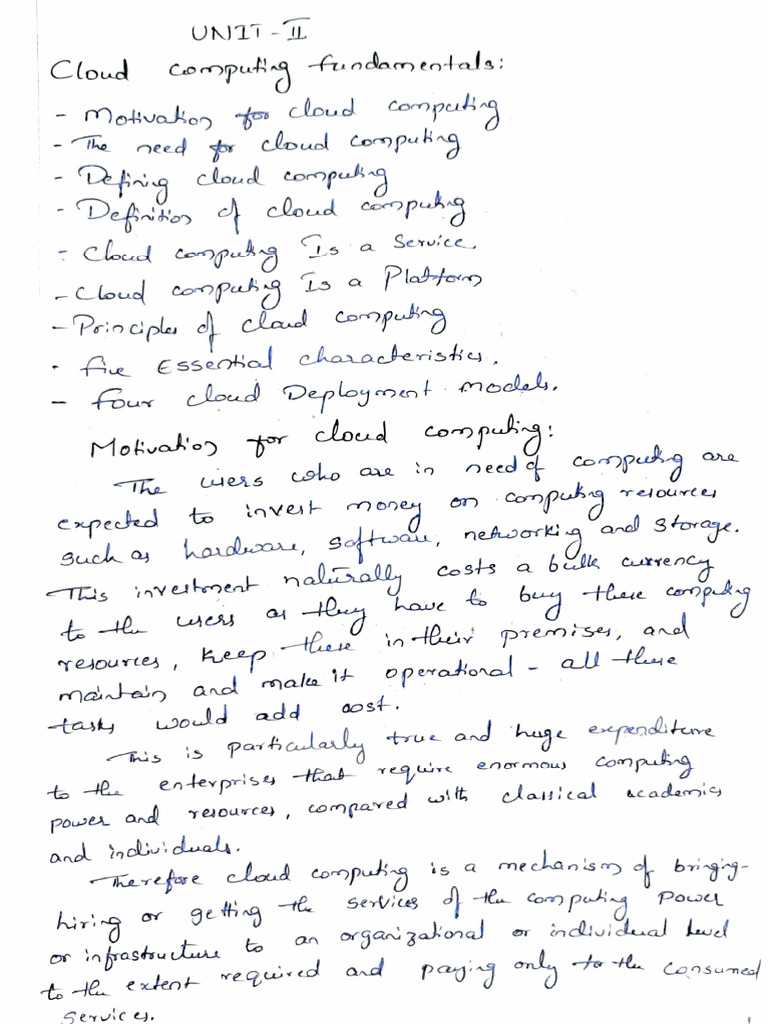 UNIT-II
Cloud computing fundamentals:
- Motivation for cloud computing
- The need for cloud computing
- Defining cloud computing
- Definition of cloud computing
- Cloud computing Is a Service.
- Cloud computing Is a Platform
- Principles of cloud computing
- five Essential characteristics.
- four cloud Deployment models.
Motivation for cloud computing:
The users who are in need of computing are
expected to invest money on computing resources
such as hardware, software, networking and storage.
This investment naturally costs a bulk currency
to the users as they have to buy these computing
resources, keep these in their premises, and
maintain and make it operational - all these
tasks would add cost.
This is particularly true and huge expenditure
to the enterprises that require enormous computing
power and resources, compared with classical academics
and individuals.
Therefore cloud computing is a mechanism of bringing-
hiring or getting the services of the computing power
or infrastructure to an organizational or individual level
to the extent required and paying only to the consumed
services.